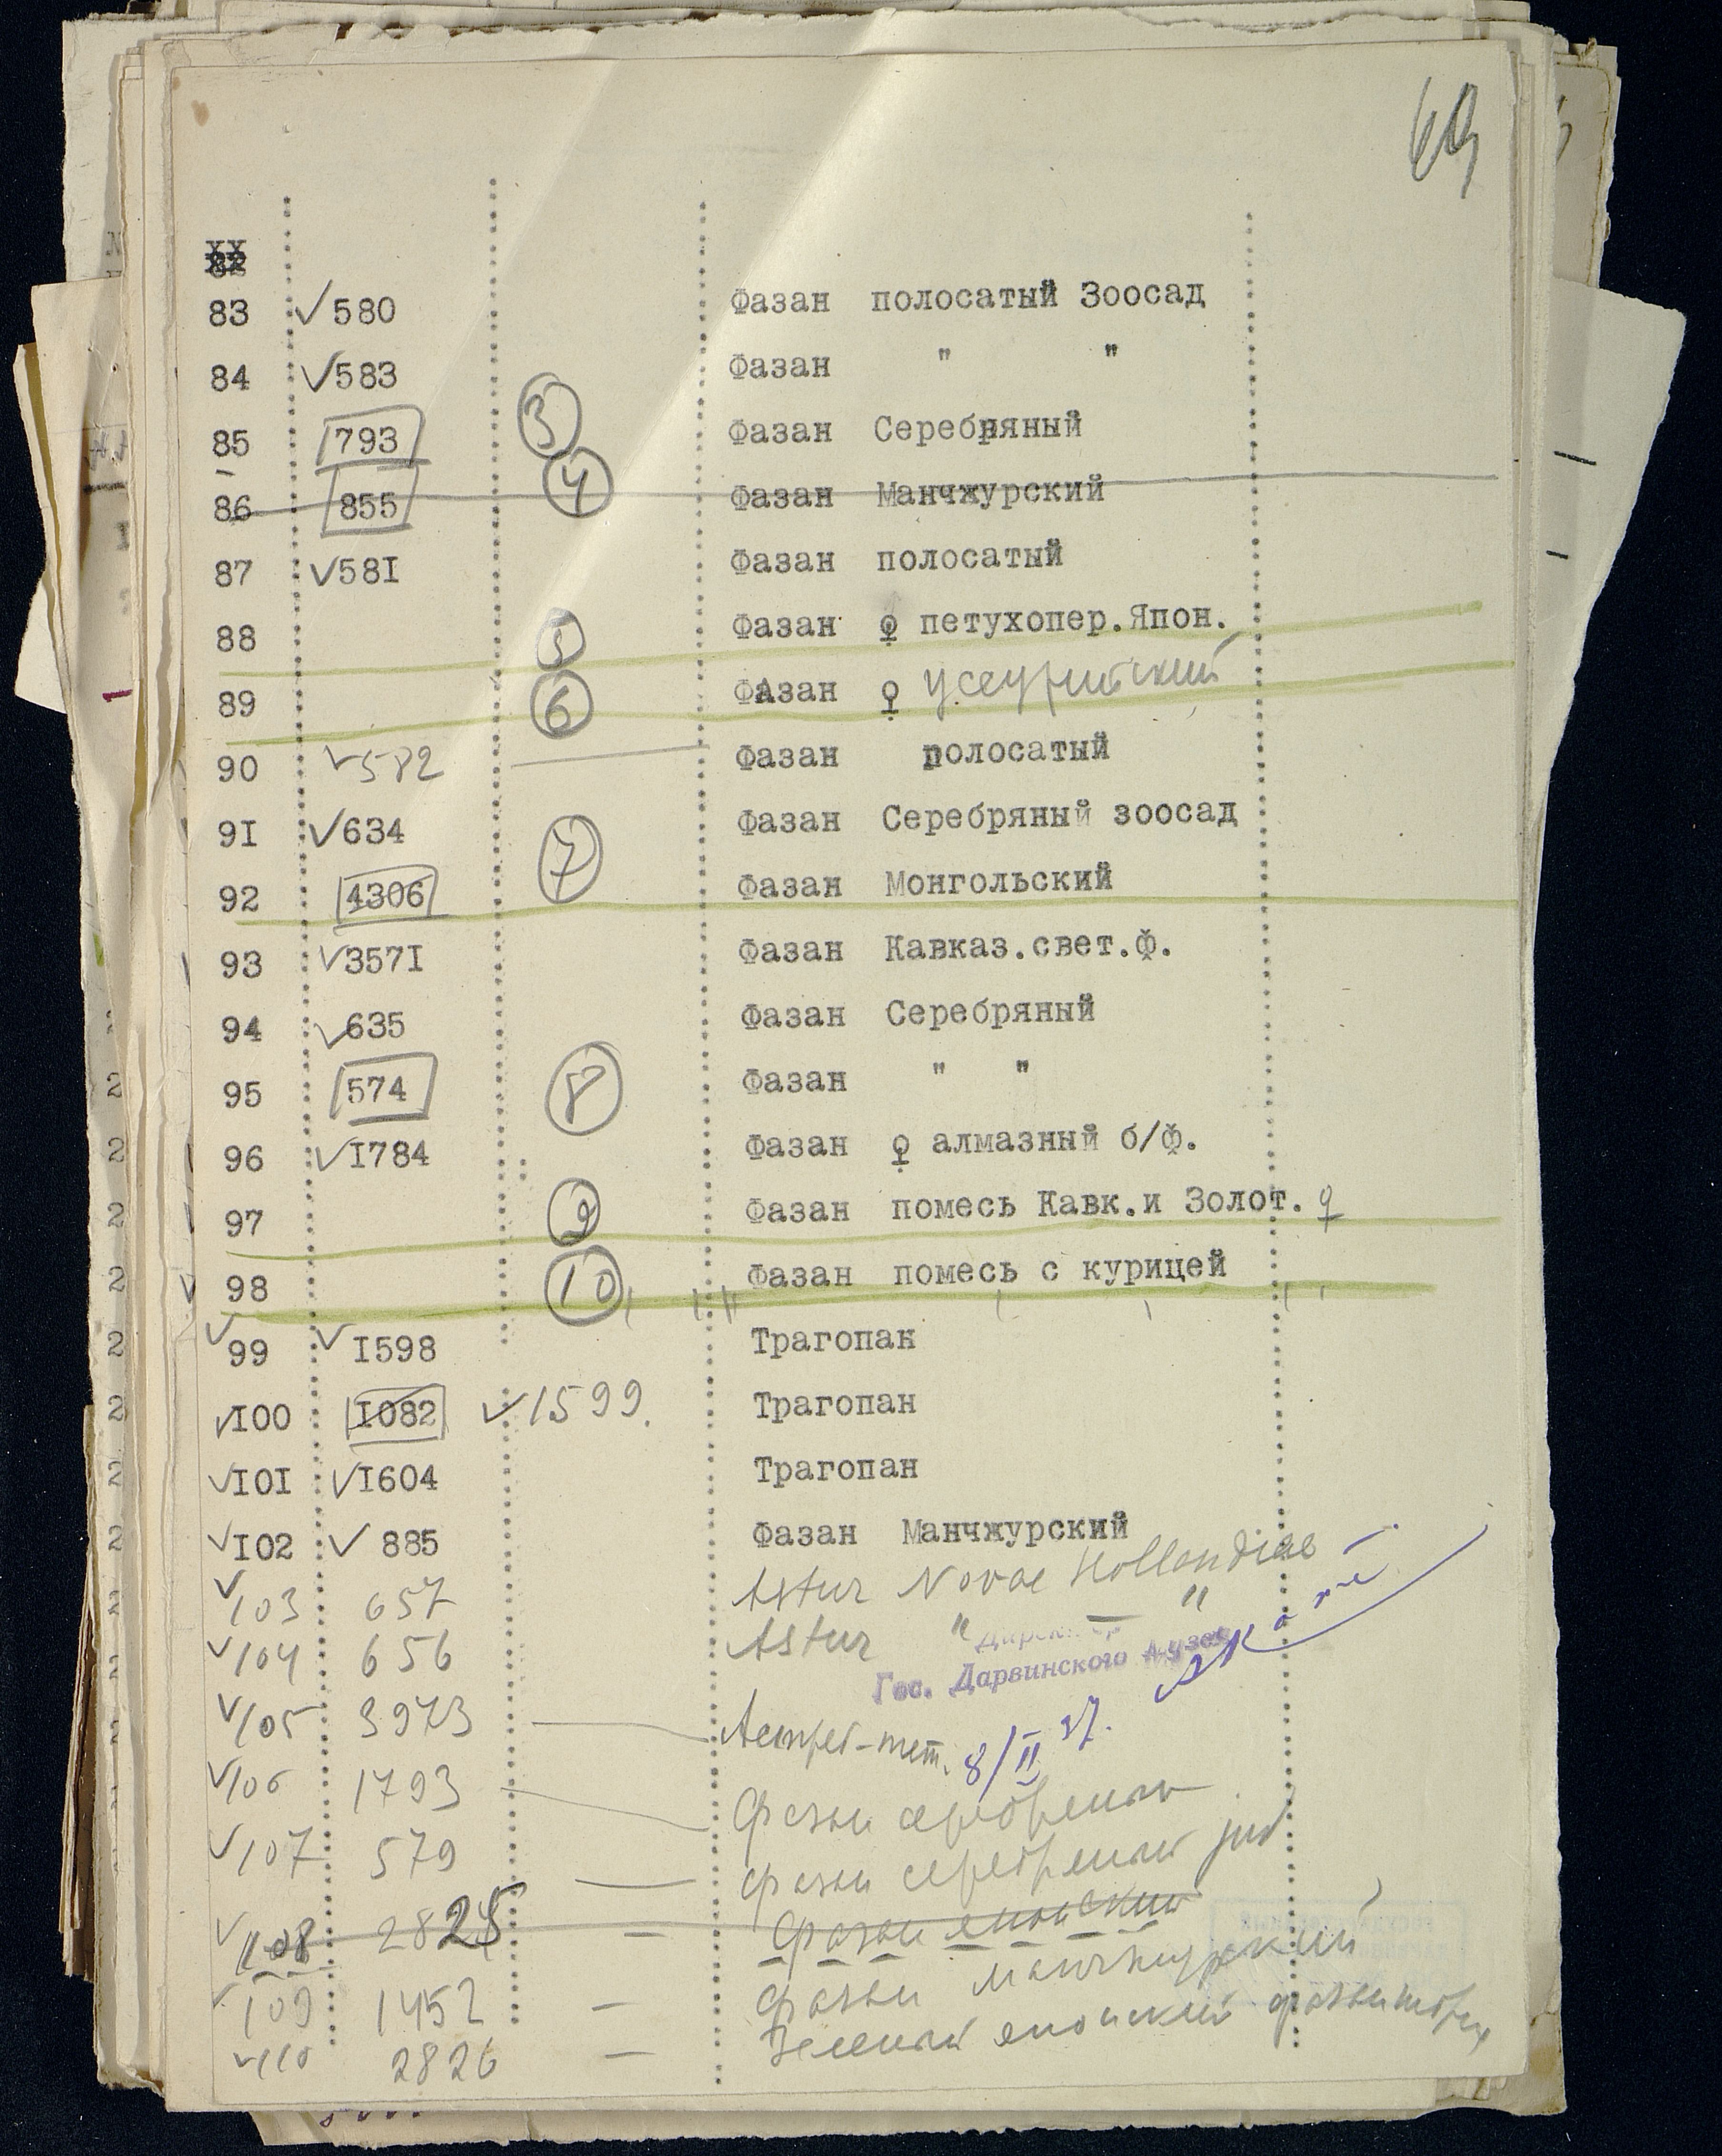 69
83 580 Фазан полосатый Зоосад
84 583 Фазан " "
85 793 3 Фазан Серебряный
86 855 4 Фазан Манчжурский
87 58I Фазан полосатый
88 5 Фазан ♀ петухопер.Япон.
89 6 ФАзан ♀ уссурийский
90 582 Фазан полосатый
9I 634 Фазан Серебряный зоосад
92 4306 7 Фазан Монгольский
93 357I Фазан Кавказ.свет.ф.
94 635 Фазан Серебряный
95 574 8 Фазан " "
96 I784 Фазан ♀ алмазный б/ф.
97 9 Фазан помесь Кавк.и Золот. ♀
98 10 Фазан помесь с курицей
99 I598 Трагопан
I00 I082 1599. Трагопан
I0I I604 Трагопан
I02 885 Фазан Манчжурский
103 657 Astur Novae Hollandiae
104 656 Astur " "
Директор
Гос. Дарвинского Музея
105 3973 Ястреб-тет.
8/II 37.
106 1793 Фазан серебреный
107 579 Фазан серебреный juv
108 2825 Фазан японский
109 1452 Фазан Манчжурский
110 2826 Зеленый японский фазан